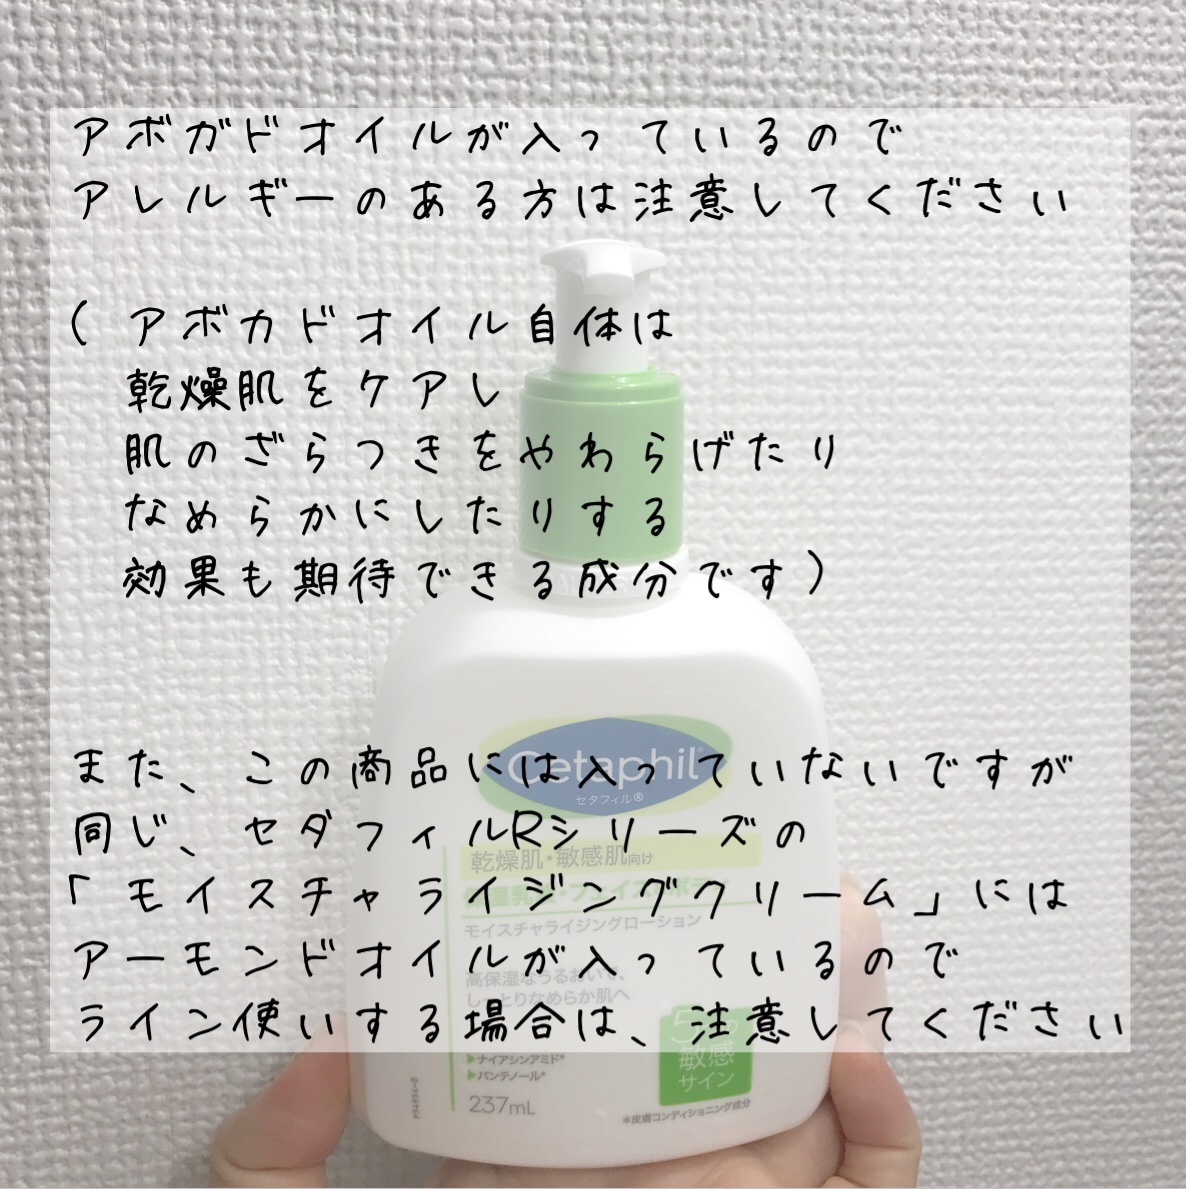 アボガドオイルが入っているので
アレルギーのある方は注意してください
(アボカドオイル自体は
乾燥肌をケアし
肌のざらつきをやわらげたり
なめらかにしたりする
効果も期待できる成分です)
Cetaphil®
セタフィル®
また、この商品には入っていないですが
同じ、セダフィルRシリーズの
乾燥肌・敏感肌向け
「モイスチャライジングクリーム」には
モイスチャライジングローション
アーモンドオイルが入っているので
高保湿なうるおいで、
しっとりなめらか肌へ
ライン使いする場合は、注意してください
敏感
サイン
▶ナイアシンアミド*
▶パンテノール*
237mL
*皮膚コンディショニング成分